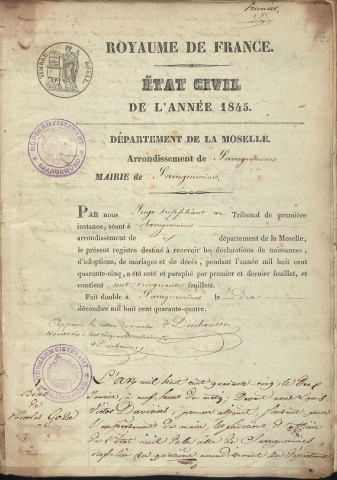 Premier
TIMBRE ROYAL
ROYAUME DE FRANCE.
ÉTAT CIVIL
DE L'ANNÉE 1845.
DÉPARTEMENT DE LA MOSELLE.
BÜRGERMEISTERAMT SAARGEMÜND
Arrondissement de Sarreguemines
MAIRIE de Sarreguemines
PAR nous Juge suppléant au Tribunal de première
instance, séant à Sarreguemines
arrondissement de département de la Moselle,
le présent registre destiné à recevoir les déclarations de naissances,
d'adoptions, de mariages et de décès, pendant l'année mil huit cent
quarante-cinq, a été coté et paraphé par premier et dernier feuillet, et
contient cent cinquante feuillets.
Fait double à Sarreguemines le Dix
décembre mil huit cent quarante-quatre.
BÜRGERMEISTERAMT SAARGEMÜND
L'an mil huit cent quarante-cinq le
janvier, à neuf heures du matin, Devant nous Louis
Victor premier adjoint, faisant pour
l'empêchement du maire, les fonctions d'officier
de l'état civil de la ville de Sarreguemines
Nicolas